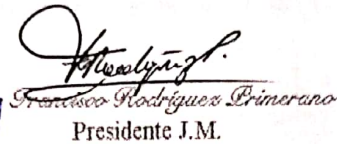 Francisco Rodríguez Primerano
Presidente J.M.